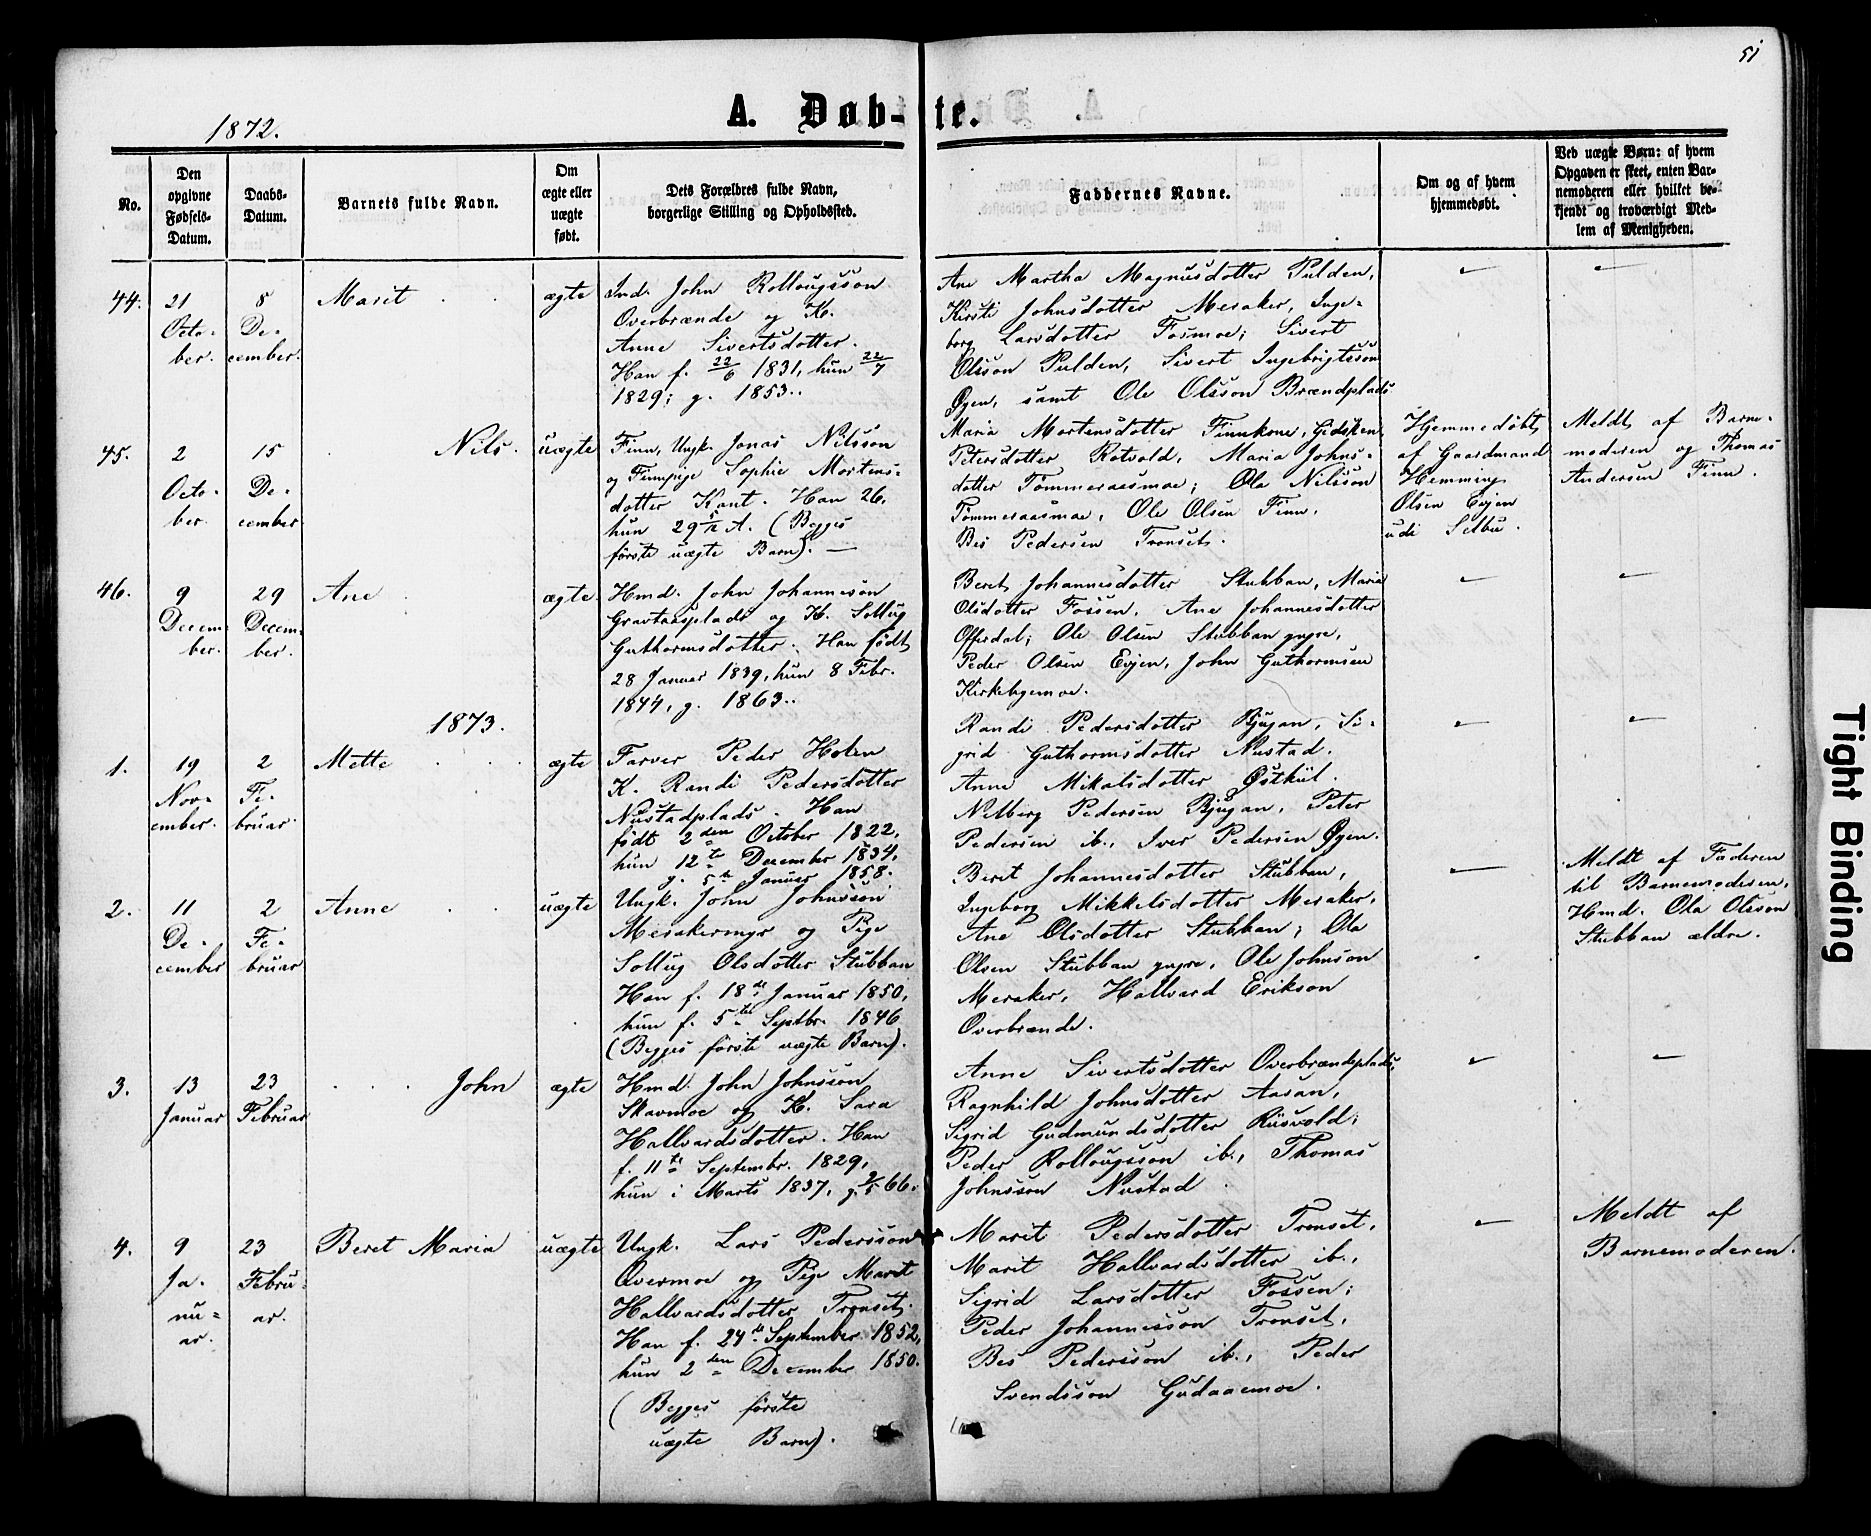 51
1872.
A. Døb-te.
No.
Den opgivne Fødsels-Datum.
Daabs-Datum.
Barnets fulde Navn.
Om ægte eller uægte født.
Dets Forældres fulde Navn, borgerlige Stilling og Opholdssted.
Faddernes Navne.
Om og af hvem hjemmedøbt.
Ved uægte Børn: af hvem Opgaven er skeet, enten Barnemoderen eller hvilket bekjendt og troværdigt Medlem af Menigheden.
44.
21 October.
8 December.
Marit
ægte
Ind. John Rollougsson
Overbrænde og K.
Anne Sivertsdotter.
Han f. 22/6 1831, hun 22/7
1829; g. 1853.
Ane Martha Magnusdotter Pulden,
Kirsti Johnsdotter Meraker, Inge-
borg Larsdotter Fosmoe; Sivert
Olsson Pulden, Sivert Ingebrigtsson
Øyen, samt Ole Olsson Brændplads
45.
2 October.
15 December.
Nils.
uægte
Finn, Ungk. Jonas Nilsson
og Finnpige Sophie Mortens-
dotter Kant. Han 26,
hun 29 A. (Begges
første uægte Barn). —
Maria Mortensdotter Finnkone, Gidsken
Petersdotter Rotvold, Maria Johns-
dotter Tømmeraasmoe; Ola Nilsson
Tømmeraasmoe, Ole Olsen Finn,
Bes Pedersen Tronset.
Hjemmedøbt
af Gaardmand
Hemming
Olsen Evjen
udi Selbu.
Meldt af Barne-
moderen og Thomas
Andersen Finn.
46.
9 December.
29 December.
Ane
ægte
Hmd. John Johannesson
Gravtaasplads og K. Sollug
Guthormsdotter. Han født
28 Januar 1839, hun 8 Febr.
1844, g. 1863.
Beret Johannesdotter Stubban, Maria
Olsdotter Fossen, Ane Johannesdotter
Offerdal; Ole Olsen Stubban yngre,
Peder Olsen Evjen, John Guthormsen
Kirkebymoe.
1873.
1.
19 November.
2 Februar.
Mette
ægte
Farver Peder Holen
K. Randi Pedersdotter
Nustadplads. Han
født 2den October 1822,
hun 12te December 1834,
g. 5te Januar 1858.
Randi Pedersdotter Bjugan, Si-
grid Guthormsdotter Nustad.
Anne Mikalsdotter Østkil.
Nelberg Pedersen Bjugan, Peter
Pedersen ib., Iver Pedersen Øyen.
2.
11 December
2 Februar
Anne
uægte
Ungk. John Johnsson
Merakermyr og Pige
Sollug Olsdotter Stubban
Han f. 18de Januar 1850,
hun f. 5te Septbr. 1846
(Begges første uægte Barn).
Beret Johannesdotter Stubban,
Ingeborg Mikkelsdotter Meraker,
Ane Olsdotter Stubban; Ola
Olsen Stubban yngre, Ole Johnson
Meraker, Hallvard Erikson
Overbrænde.
Meldt af Faderen
til Barnemoderen,
Hmd. Ola Olsson
Stubban ældre.
3.
13 Januar
23 Februar
John
ægte
Hmd. John Johnsson
Skavmoe og K. Sara
Hallvardsdotter. Han
f. 11te Septembr. 1829,
hun i Marts 1837, g. 2/5 66.
Anne Sivertsdotter Overbrændsplads,
Ragnhild Johnsdotter Aasan,
Sigrid Gudmundsdotter Rusvold;
Peder Rollougsson ib., Thomas
Johnsson Nustad.
4.
9 Januar.
23 Februar.
Beret Maria
uægte
Ungk. Lars Pedersson
Overmoe og Pige Marit
Hallvardsdotter Tronset.
Han f. 24de September 1852,
hun 2den December 1850.
(Begges første
uægte Barn).
Marit Pedersdotter Tronset,
Marit Hallvardsdotter ib.,
Sigrid Larsdotter Fossen;
Peder Johannesson Tronset,
Bes Pedersson ib., Peder
Svendsson Gudaaemoe.
Meldt af
Barnemoderen.
Tight Binding